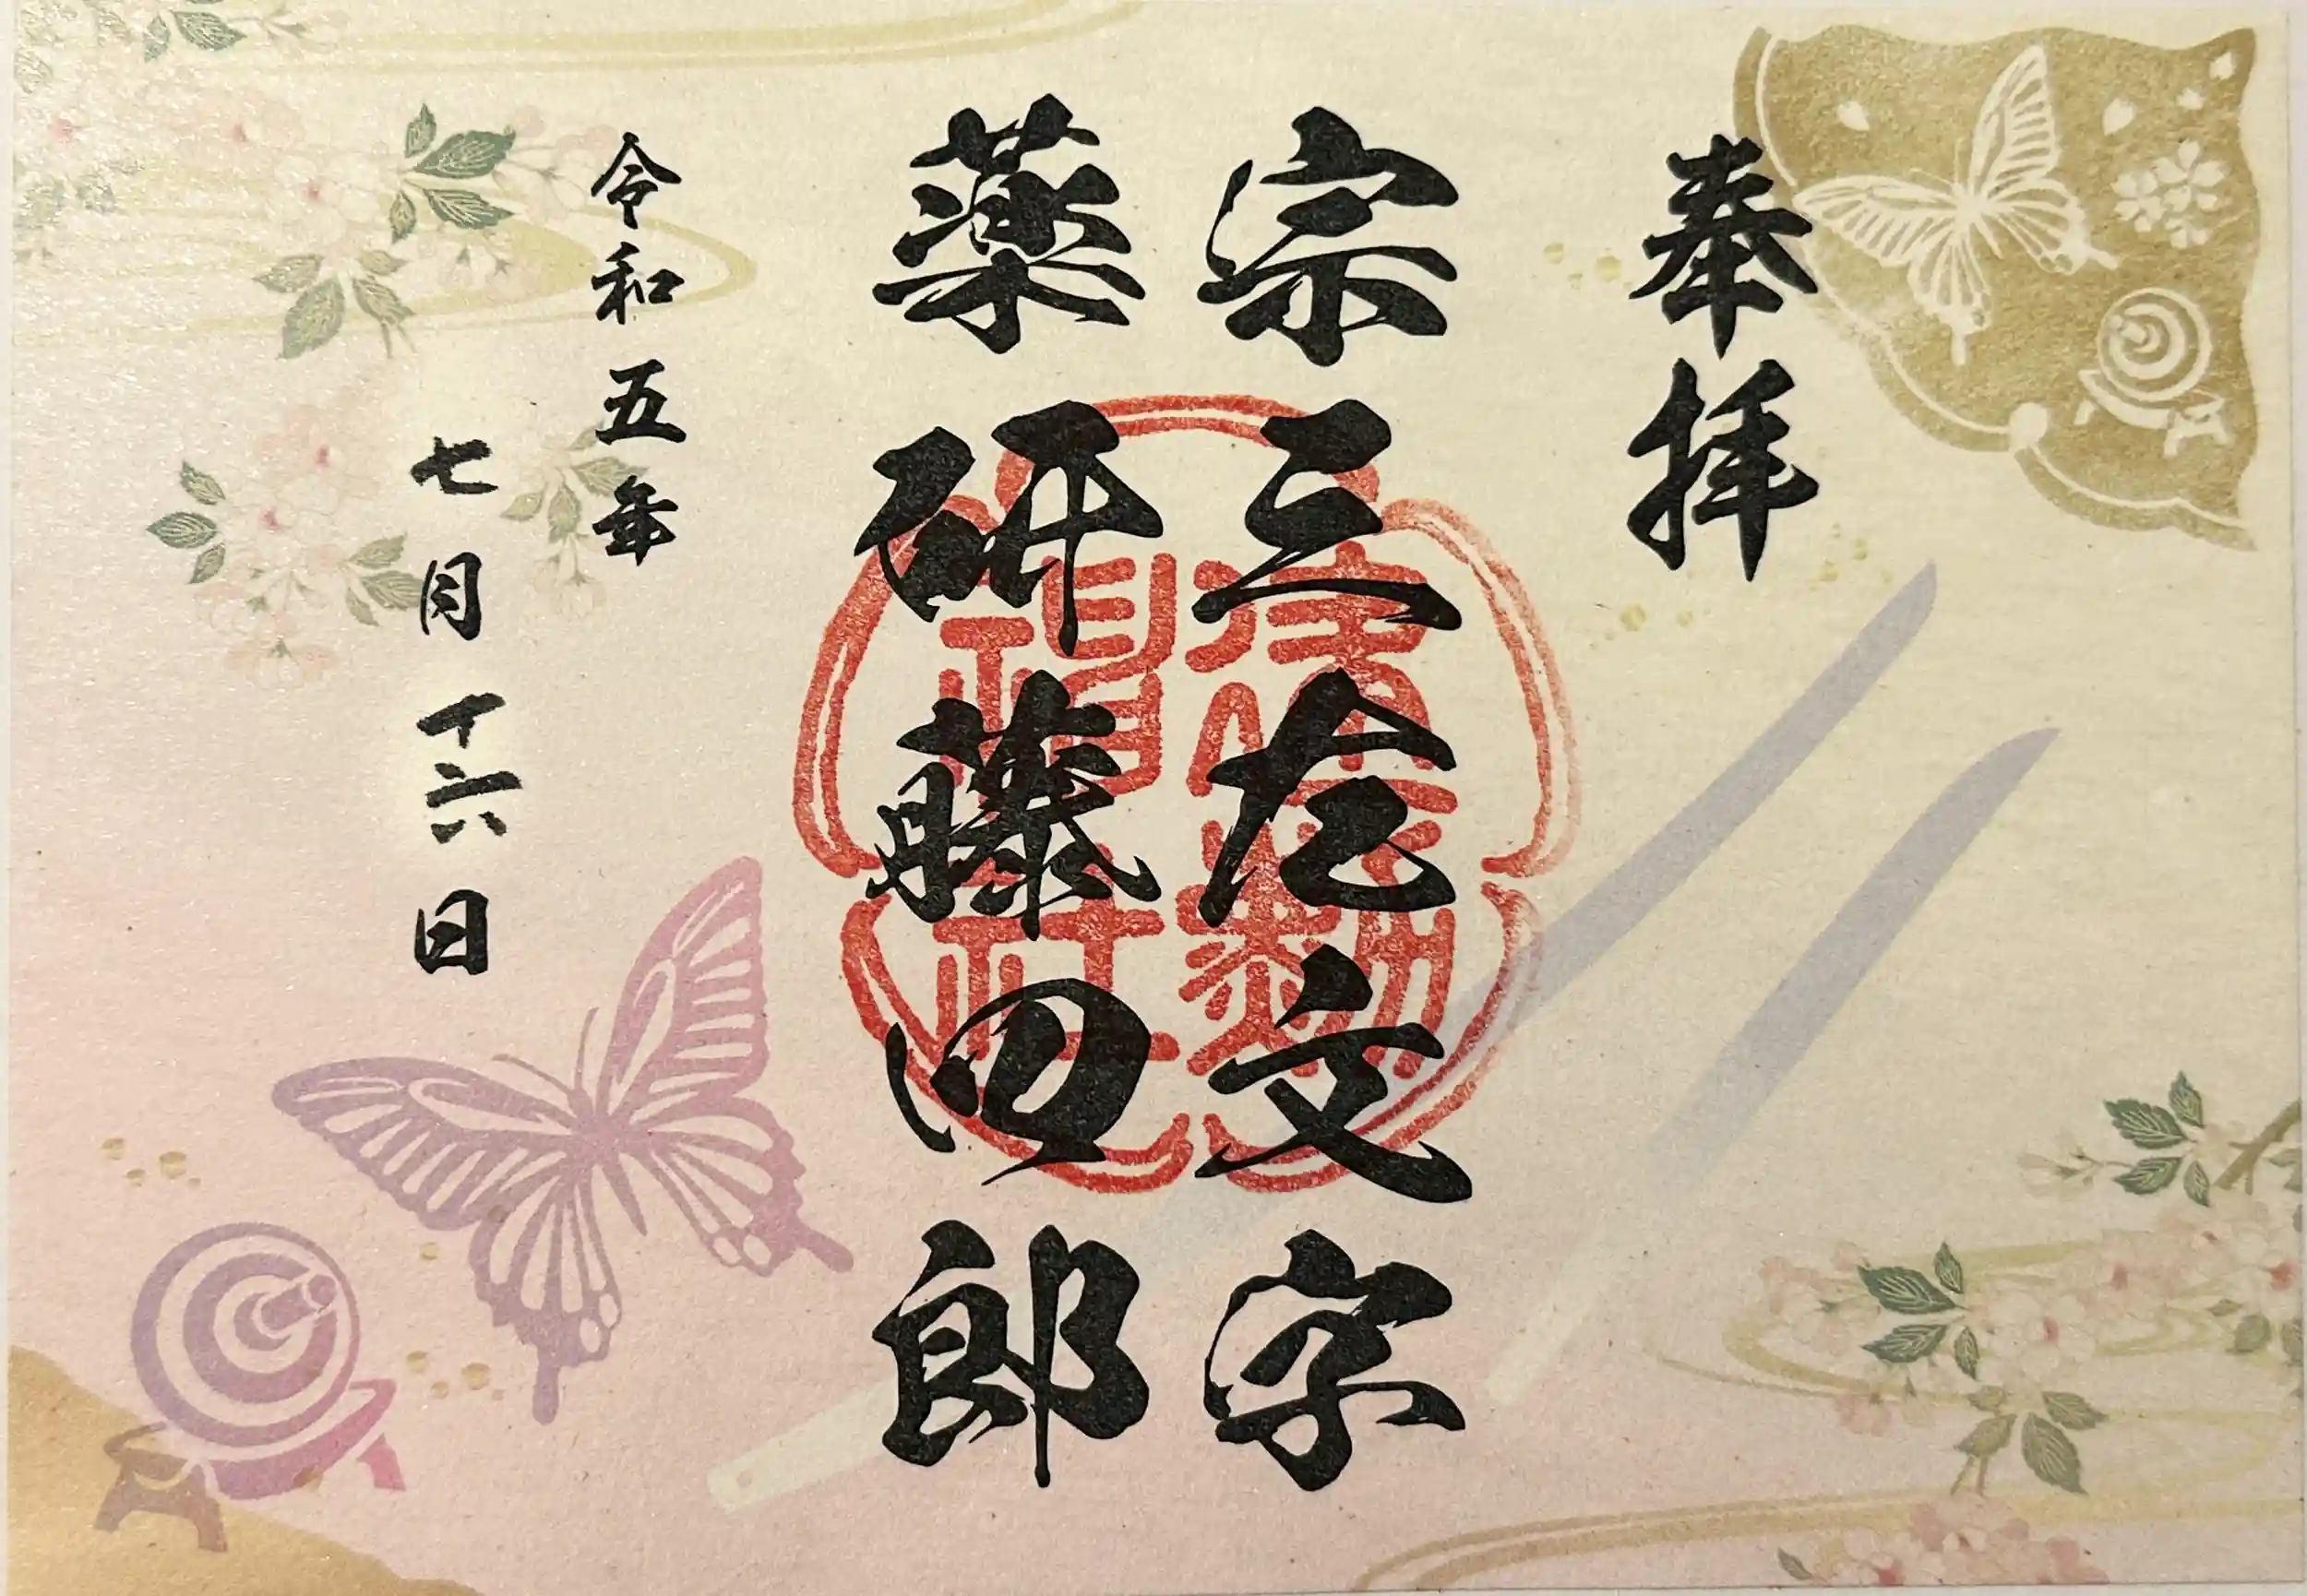 奉拝
宗三左文字
薬研藤四郎
令和五年
七月十六日
建勲
神社